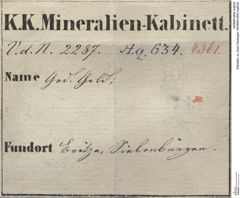 K.K. Mineralien-Kabinett.
V.d.N. 2287. A.g. 634. 4361
Name Ged. Gold:
Fundort Boitza, Siebenbürgen.